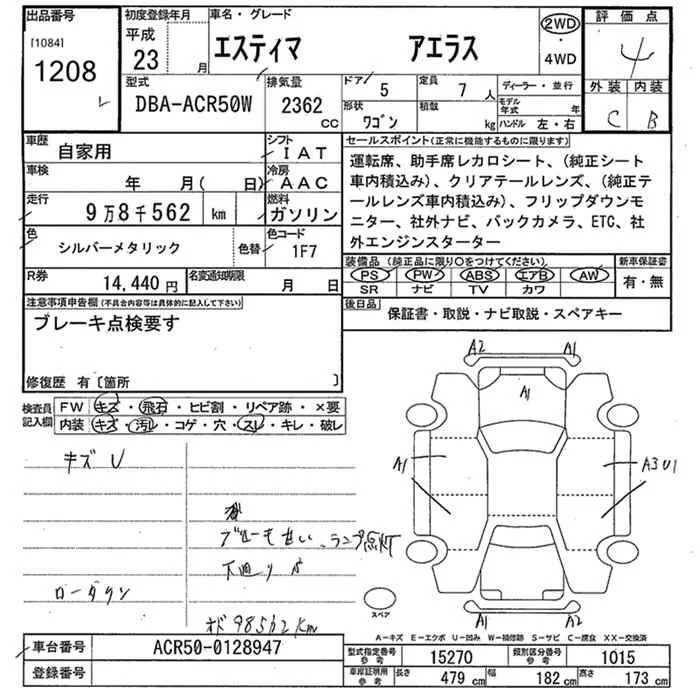 出品番号
[1084]
1208
初度登録年月
平成
23 月
車名・グレード
エスティマ アエラス
2WD
・
4WD
評価点
4
外装 内装
C B
型式
DBA-ACR50W
排気量
2362
CC
ドア
5
定員
7 人
ディーラー・並行
形状
ワゴン
積載
kg
モデル年式 年
ハンドル 左・右
車歴
自家用
シフト
IAT
車検
年 月( 日)
冷房
AAC
走行
9万8千562 km
燃料
ガソリン
色
シルバーメタリック
色替
色コード
1F7
R券
14,440 円
名変通知期限
月 日
セールスポイント(正常に機能するものに限ります)
運転席、助手席レカロシート、(純正シート
車内積込み)、クリアテールレンズ、(純正テ
ールレンズ車内積込み)、フリップダウンモ
ニター、社外ナビ、バックカメラ、ETC、社
外エンジンスターター
装備品(純正品に限り〇をつけてください)
PS PW ABS エアB AW
SR ナビ TV カワ
新車保証書
有・無
後日品
保証書・取説・ナビ取説・スペアキー
注意事項申告欄(不具合内容等は具体的に記入して下さい)
ブレーキ点検要す
修復歴 有〔箇所 〕
検査員
記入欄
FW キズ・飛石・ヒビ割・リペア跡・×要
内装 キズ・汚レ・コゲ・穴・スレ・キレ・破レ
キズ U
ランプ点灯
下廻り
ローダウン
オド 98562km
A2 A1
A1
A1
A3 U1
A1 A2
スペア
A-キズ E-エクボ U-凹み W-補修跡 S-サビ C-腐食 XX-交換済
車台番号
ACR50-0128947
登録番号
型式指定番号
参考
15270
類別区分番号
参考
1015
車庫証明用
参考
長さ 479 cm 幅 182 cm 高さ 173 cm